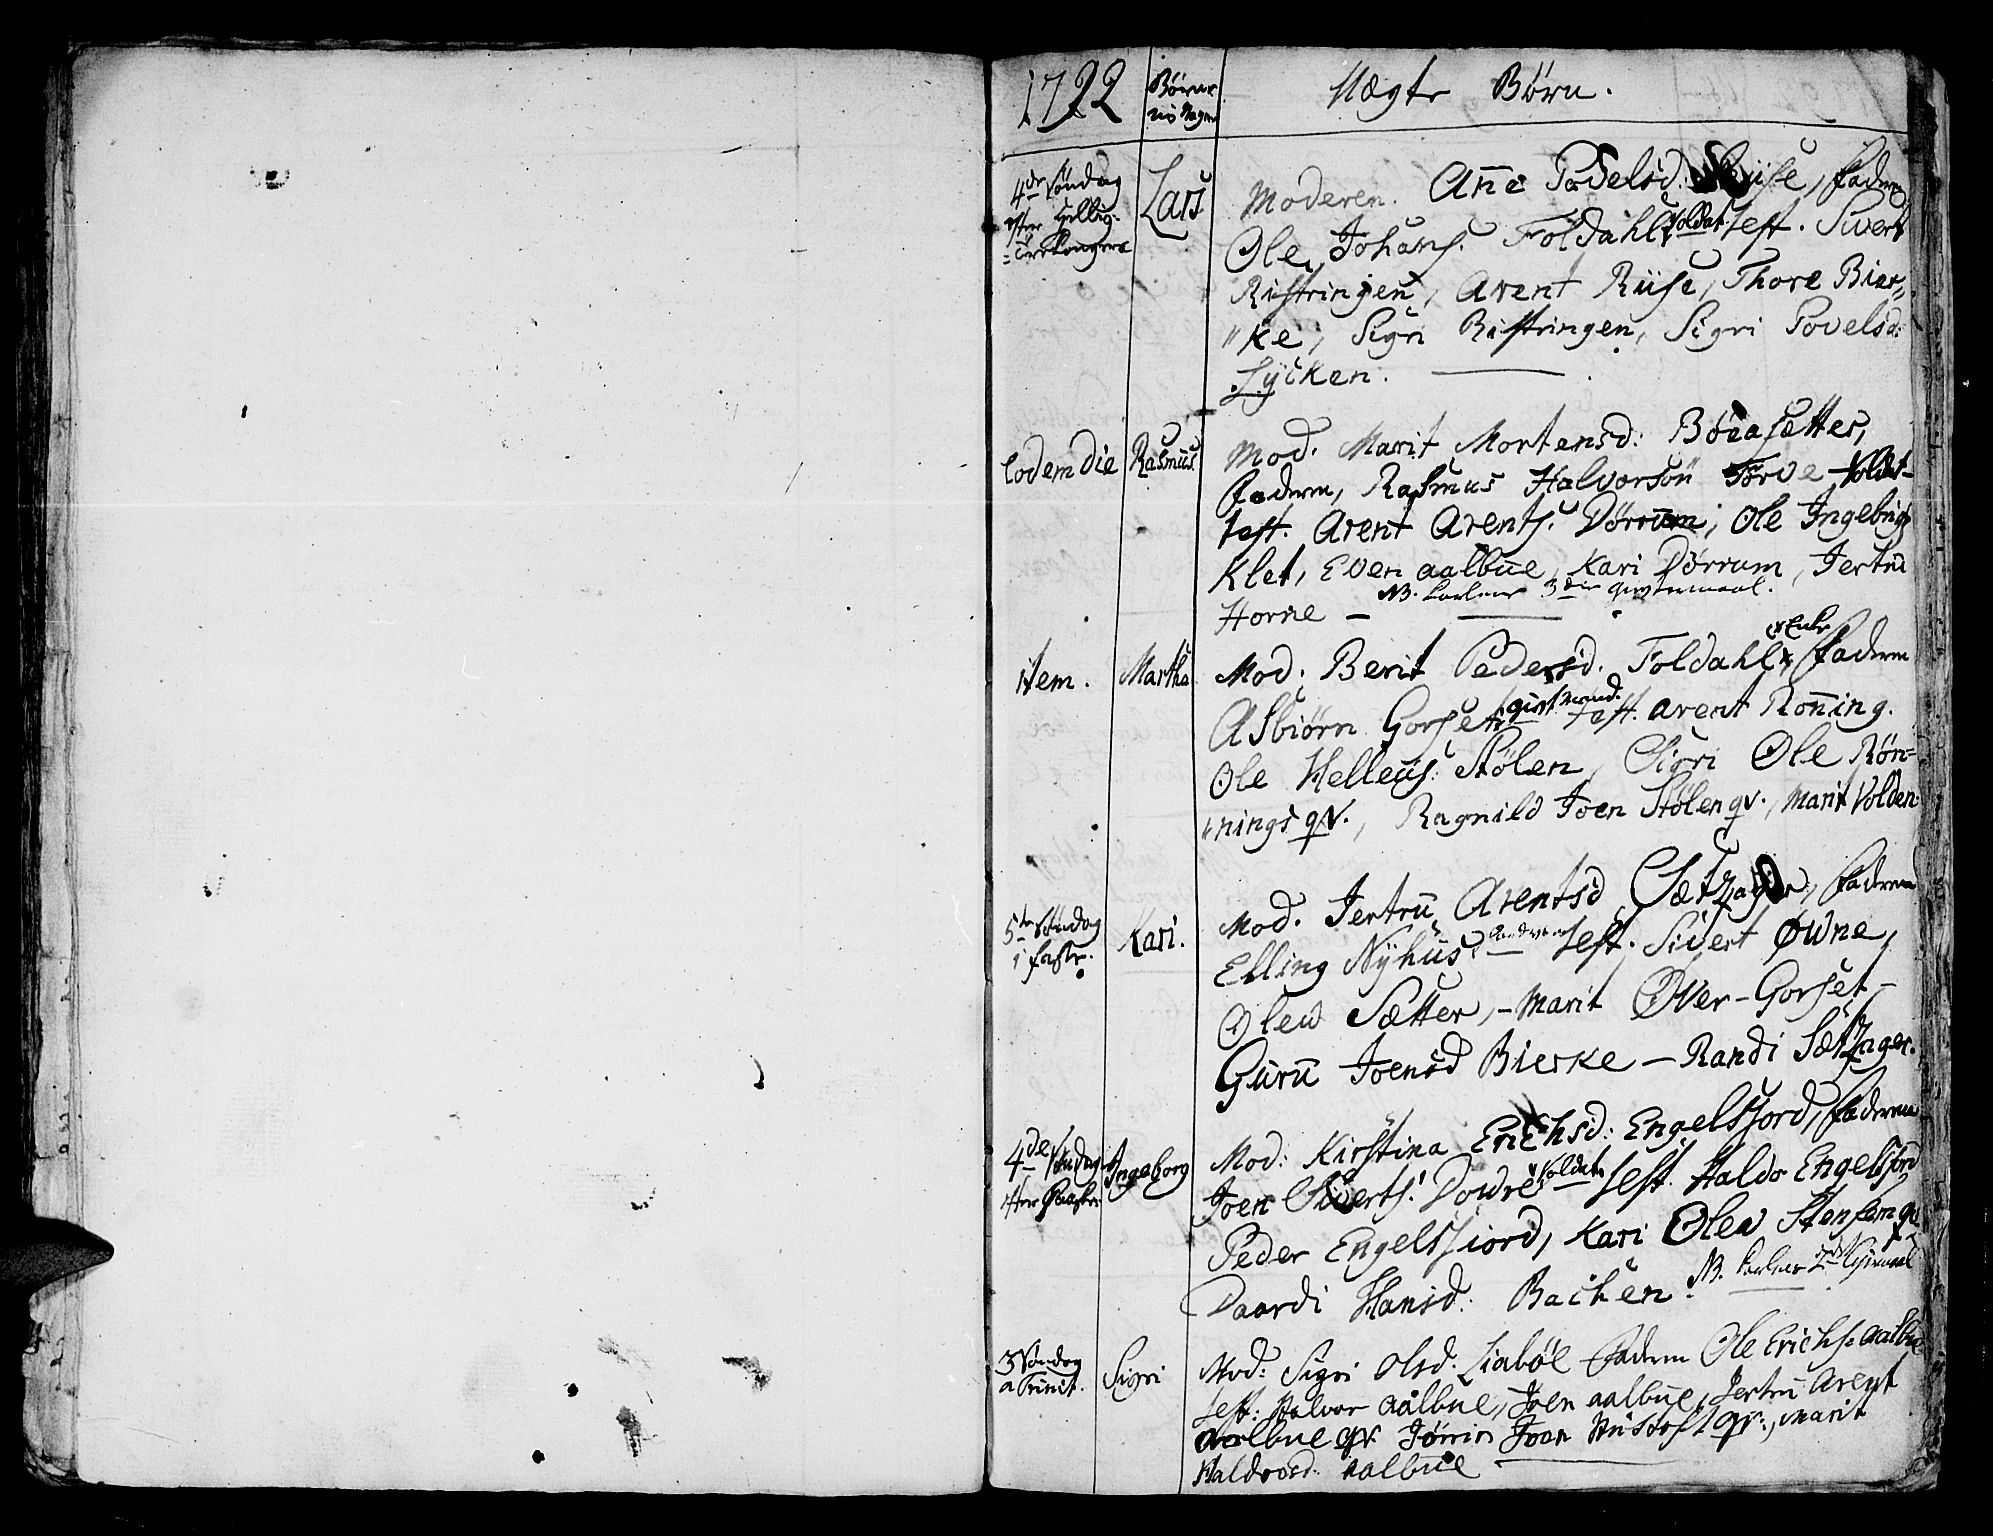 1722 Børne nes Nagne Uægte Børn.
4de Søndag
efter Hellig-
=Tre Konger
Lars
Moderen. Ane Povelsd. Riise, Faderen
Ole Johans. Foldahl Soldat Test. Sivert
Ristringen, Arent Riise, Thore Bier„
„ke, Sigri Ristringen, Sigri Povelsd:
Lycken.
Eodem die Rasmus
Mod. Marit Mortensd: Bøeasetter,
Faderen, Rasmus Halvorsøn Torve Soldat-
test. Arent Arents. Dørrum, Ole Ingebrigs
Klet, Even aalbue, Kari Dørrum, Jertrud
NB. 3die
Horne —
item. Martha
Mod: Berit Pedersd. Foldahl Enke Faderen
Asbiørn Gorset gift mand. Test. arent Rønning.
Ole Helleüs: Stølen, Sigri Ole Røn=
„nings qv., Ragnild Joen Stølen qv., Marit Volden
5te Søndag
i faste.
Kari.
Mod. Jertrü Arentsd Sætzager, Faderen
Elling Nÿhüs. — Test. Sivert Øwne,
Olew Sætter, – Marit Øver-Gorset –
Gurü Joensd Bierke — Randi Sætzager.
4de Søndag
efter Paaske
Ingeborg
Mod: Kirstina Erichsd: Engelsfjord, Faderen
Joen Siverts. Dowre Soldat Test. Haldo Engelsfiord
Peder Engelsfiord, Kari Olew Stensem qv.
Daardi Hansd: Bachen. NB.
3 Søndag
a Trinit.
Sigri
Mod: Sigri Olsd. Liabøl Faderen Ole Erichs. aalbue
Test: Halvor aalbue, Joen aalbue, Jertru Arent
aalbue qv. Jørrin Joen qv., marit
Haldorsd: aalbue